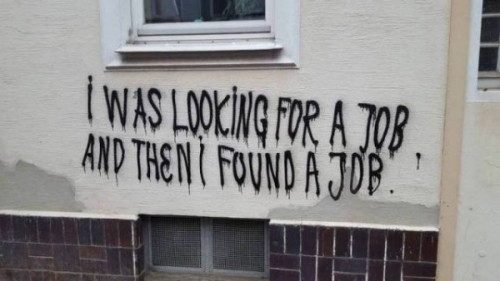 i WAS LOOKiNG FOR A JOB
AND THEN i FOUND A JOB.